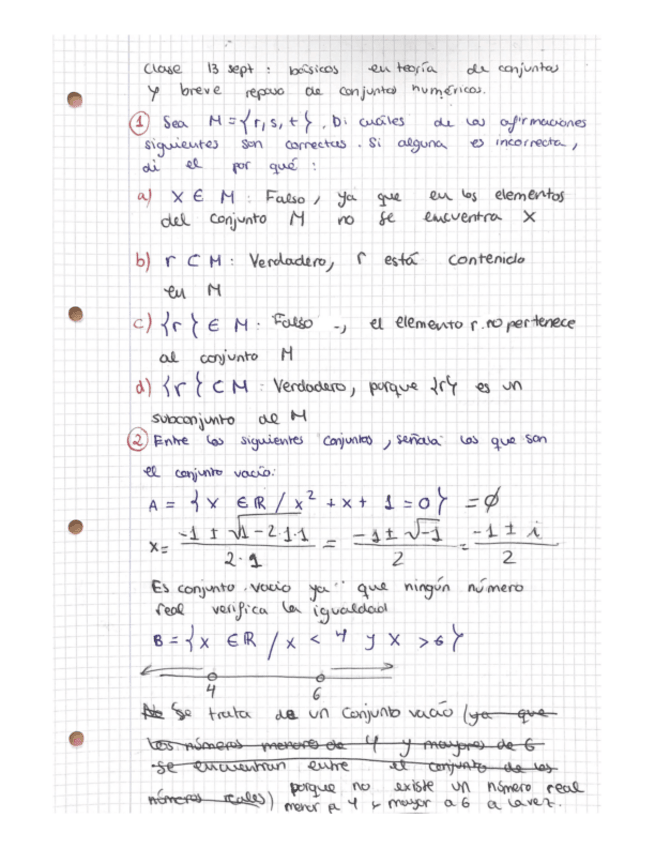 Clase 13 sept : básicos en teoría de conjuntos
y breve repaso de conjuntos numéricos.
① Sea M = {r, s, t}. Di cuáles de las afirmaciones
siguientes son correctas. Si alguna es incorrecta,
di el por qué :
a) X ∈ M : Falso, ya que en los elementos
del conjunto M no se encuentra X
b) r ⊂ M : Verdadero, r está contenido
en M
c) {r} ∈ M : Falso -, el elemento r no pertenece
al conjunto M
d) {r} ⊂ M : Verdadero, porque {r} es un
subconjunto de M
② Entre los siguientes conjuntos, señala los que son
el conjunto vacío:
A = {x ∈ ℝ / x² + x + 1 = 0} = ∅
x = (-1 ± √(1-2·1·1))/(2·1) = (-1 ± √-1)/2 = (-1 ± i)/2
Es conjunto vacío ya que ningún número
real verifica la igualdad
B = {x ∈ ℝ / x < 4 y x > 6}
4 6
Se trata de un conjunto vacío (ya que
los números menores de 4 y mayores de 6
se encuentran entre el conjunto de los
números reales) porque no existe un número real
menor a 4 y mayor a 6 a la vez.